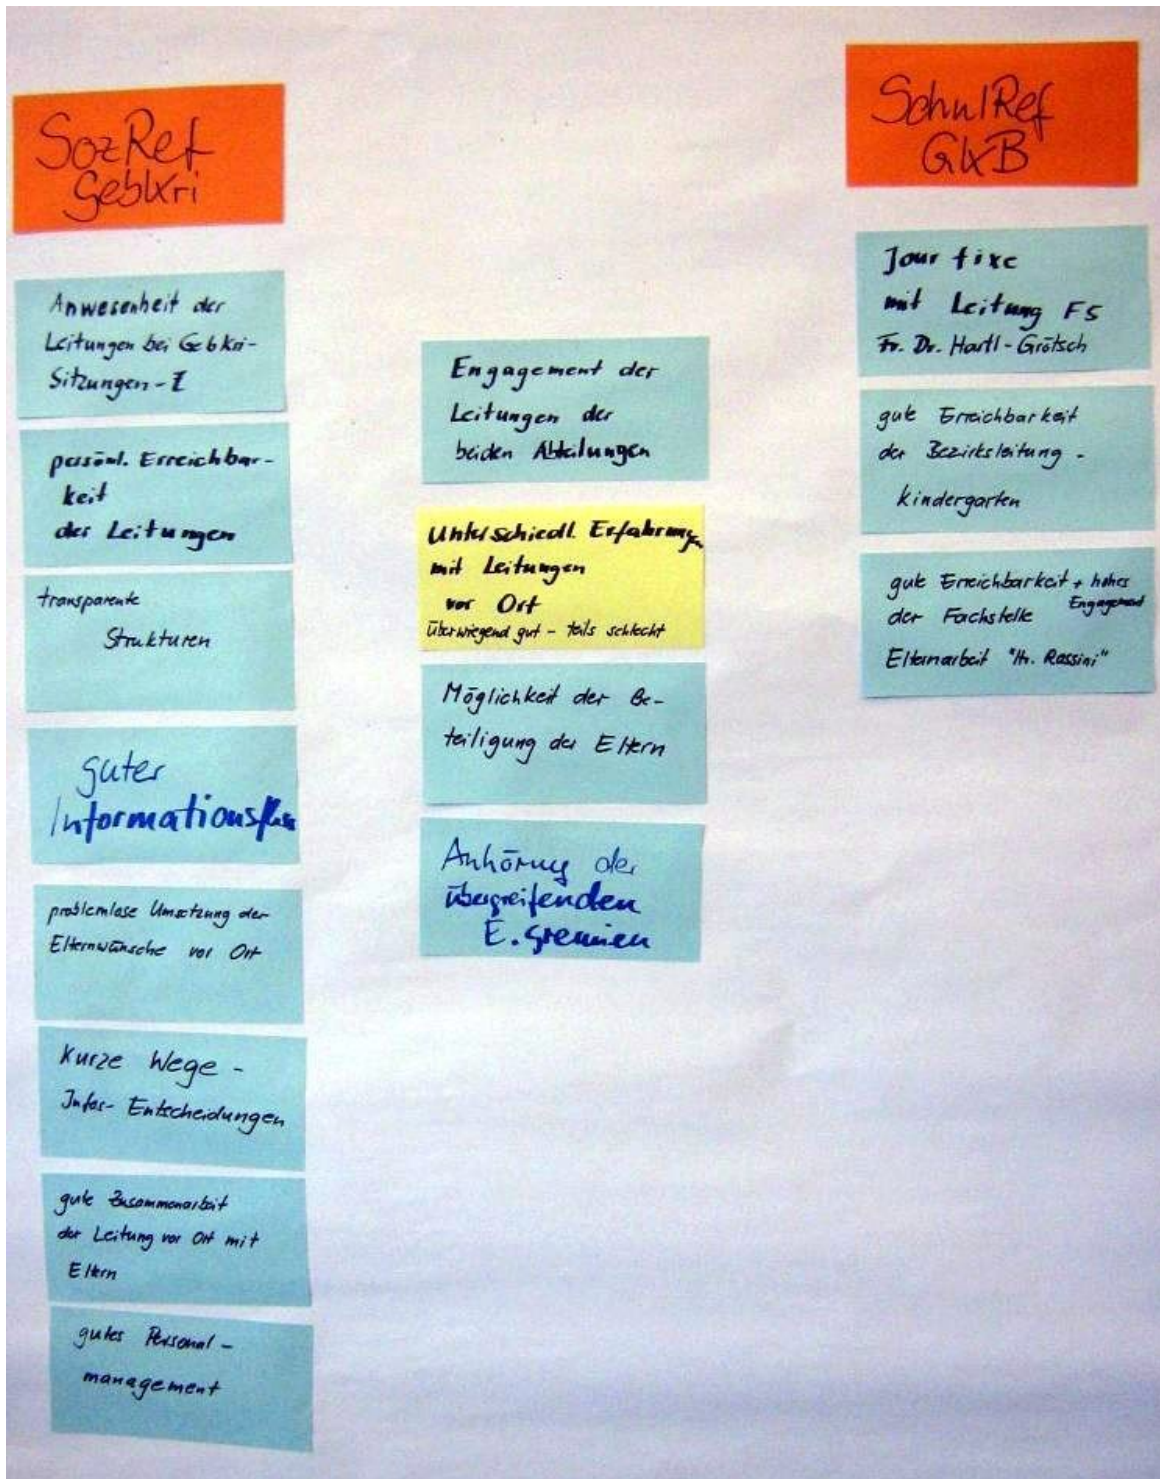 SozRef
GebKri
Anwesenheit der
Leitungen bei GebKri-
Sitzungen-
persönl. Erreichbar-
keit
der Leitungen
transparente
Strukturen
guter
Informationsfluss
problemlose Umsetzung der
Elternwünsche vor Ort
Kurze Wege -
Infos- Entscheidungen
gute Zusammenarbeit
der Leitung vor Ort mit
Eltern
gutes Personal-
management
Engagement der
Leitungen der
beiden Abteilungen
Unterschiedl. Erfahrungen
mit Leitungen
vor Ort
überwiegend gut - teils schlecht
Möglichkeit der Be-
teiligung der Eltern
Anhörung der
übergreifenden
E. gremien
SchulRef
GKB
Jour fixe
mit Leitung FS
Fr. Dr. Hartl-Grötsch
gute Erreichbarkeit
der Bezirksleitung -
kindergarten
gute Erreichbarkeit + hohes
Engagement
der Fachstelle
Elternarbeit "Hr. Rassini"